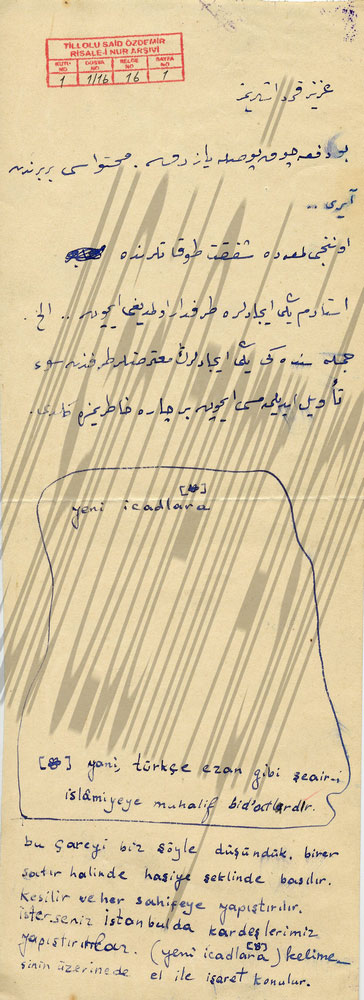 TİLLOLU SAİD ÖZDEMİR
RİSALE-İ NUR ARŞİVİ
KUTU NO DOSYA NO BELGE NO SAYFA NO
1 1/16 16 1
عزيز قرداشلريمز
بو دفعه چوق پوصله يازدق. محتواسى بربرندن
آيرى ..
اوننجى لمعه ده شفقت طوقاتلرنده
استادم يڭى ايجادلره طرفدار اولمديغى ايچون .. الخ.
جمله سنده كى يڭى ايجادلرڭ معترضلر طرفندن سوء
تأويل ايديلمه مسى ايچون بر چاره خاطريمزه كلدى.
[*]
yeni icadlara
[*] yani, türkçe ezan gibi şeair-i
islâmiyeye muhalif bid'atlardır.
bu çareyi biz şöyle düşündük. birer
satır halinde haşiye şeklinde basılır.
Kesilir ve her sahifeye yapıştırılır.
isterseniz istanbulda kardeşlerimiz
yapıştırırlar. (yeni icadlara[*]) kelime-
sinin üzerinede el ile işaret konulur.